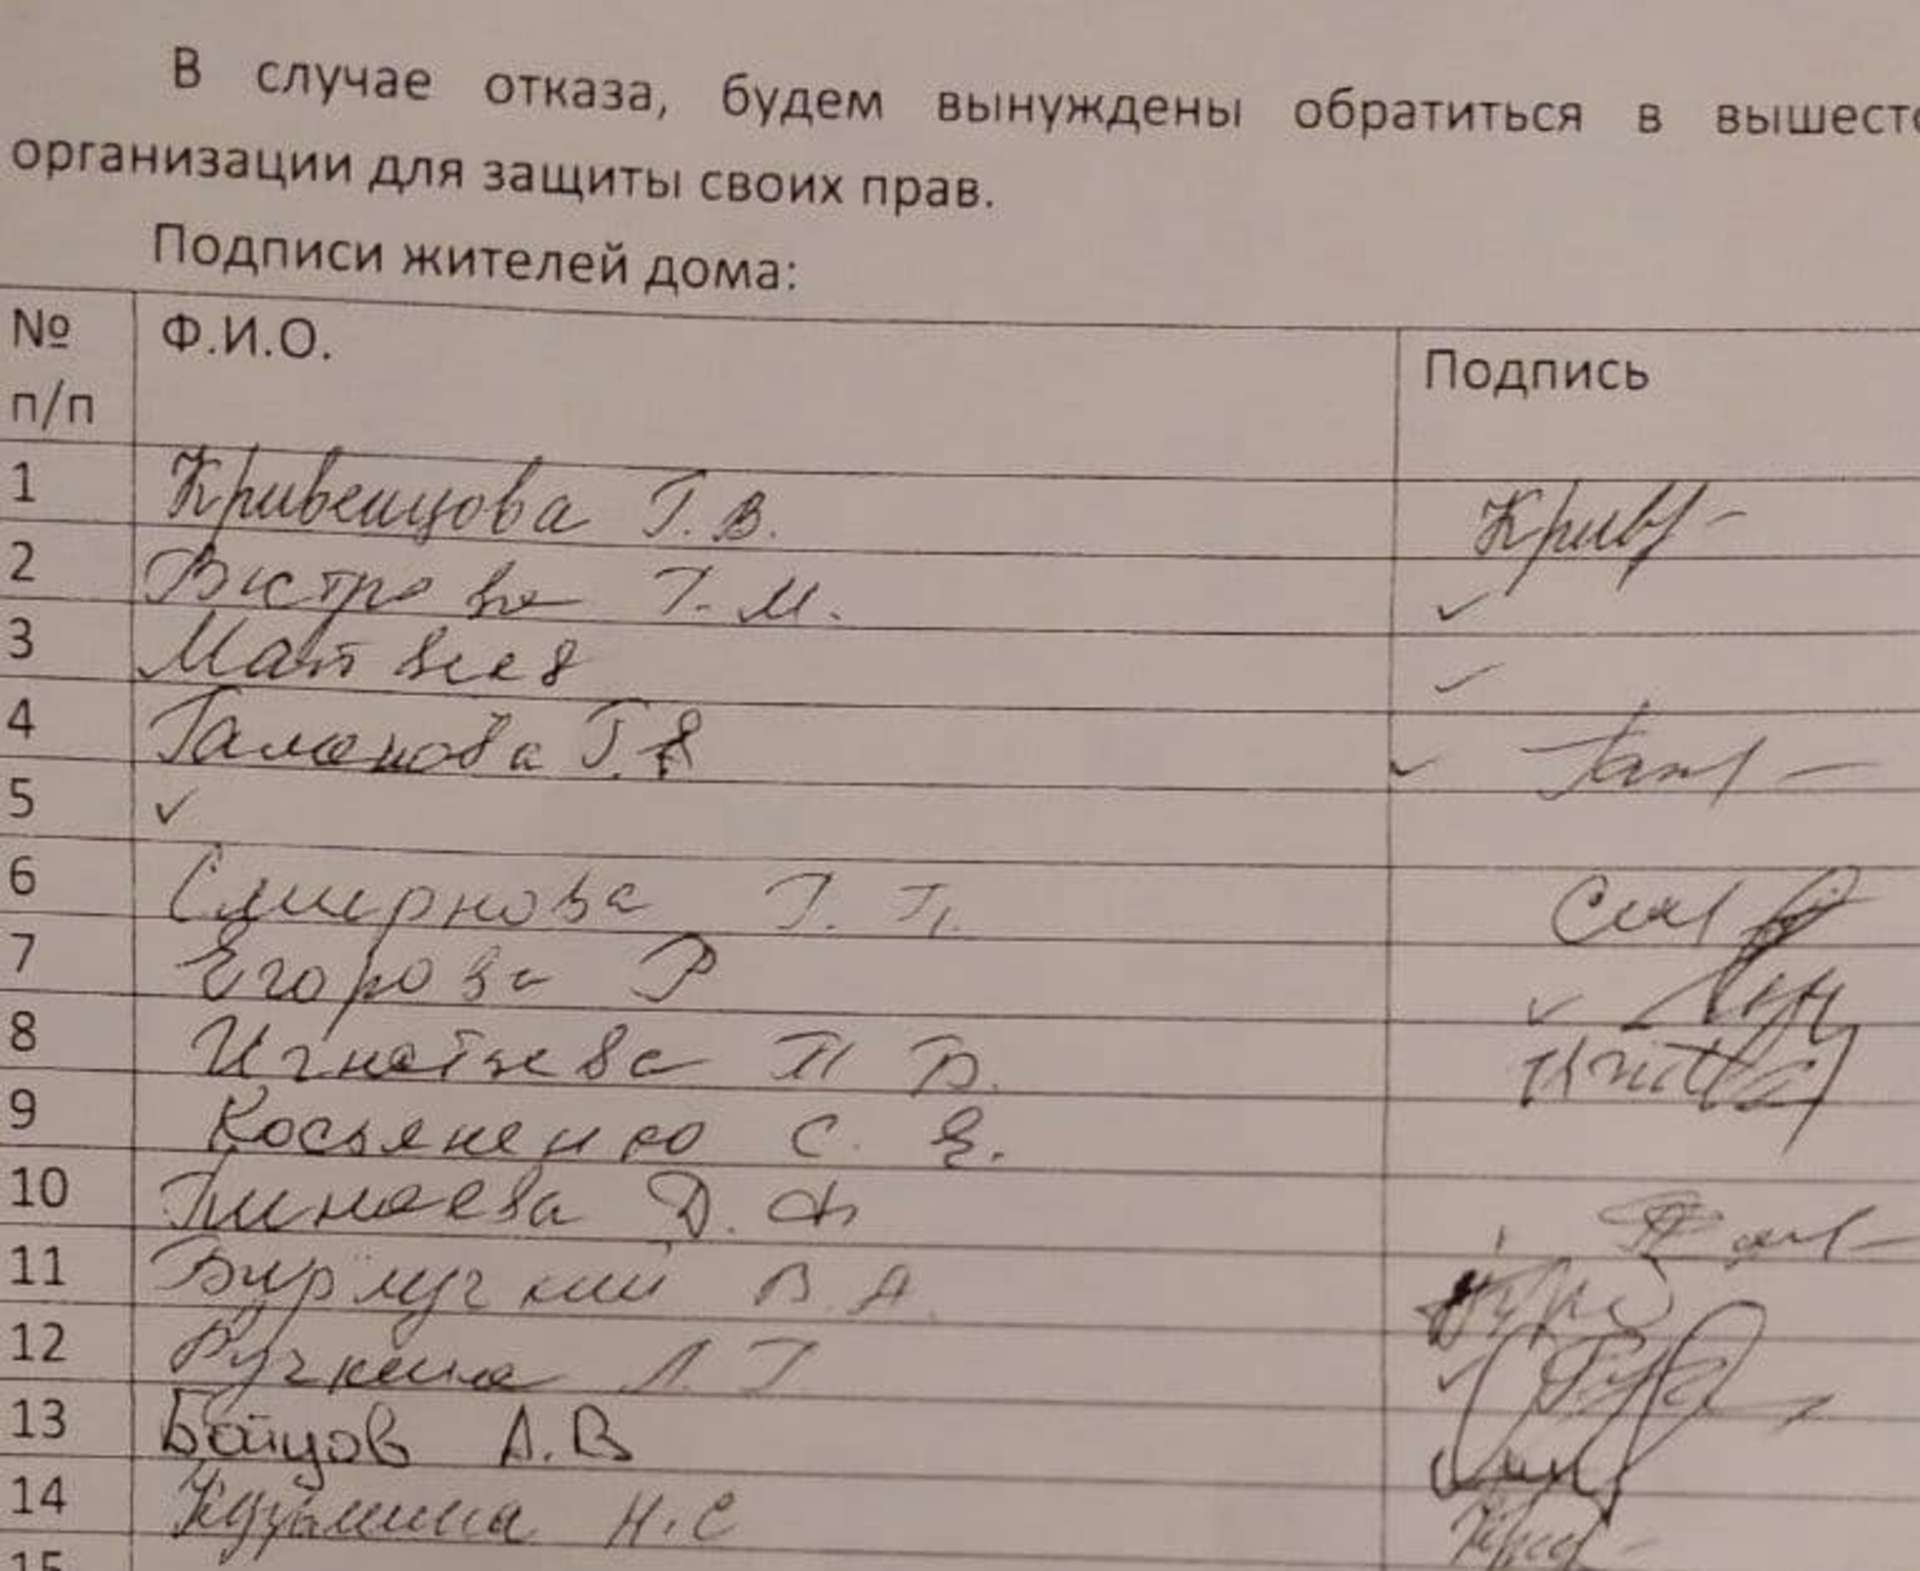 В случае отказа, будем вынуждены обратиться в вышесто
организации для защиты своих прав.
Подписи жителей дома:
№ п/п Ф.И.О. Подпись
1 Кривенцова Г.В. Крив
2 Г.М.
3 Матвеев
4 Г.
5
6 Смирнова Г. П.
7 Егорова Р
8 Игнатьева П Б.
9 Косьяненко С. Е.
10 Пинаева Д. Ф
11 В. А.
12 Ручкина Л. Г
13 Бойцов А.В
14 Кузьмина Н.С
15